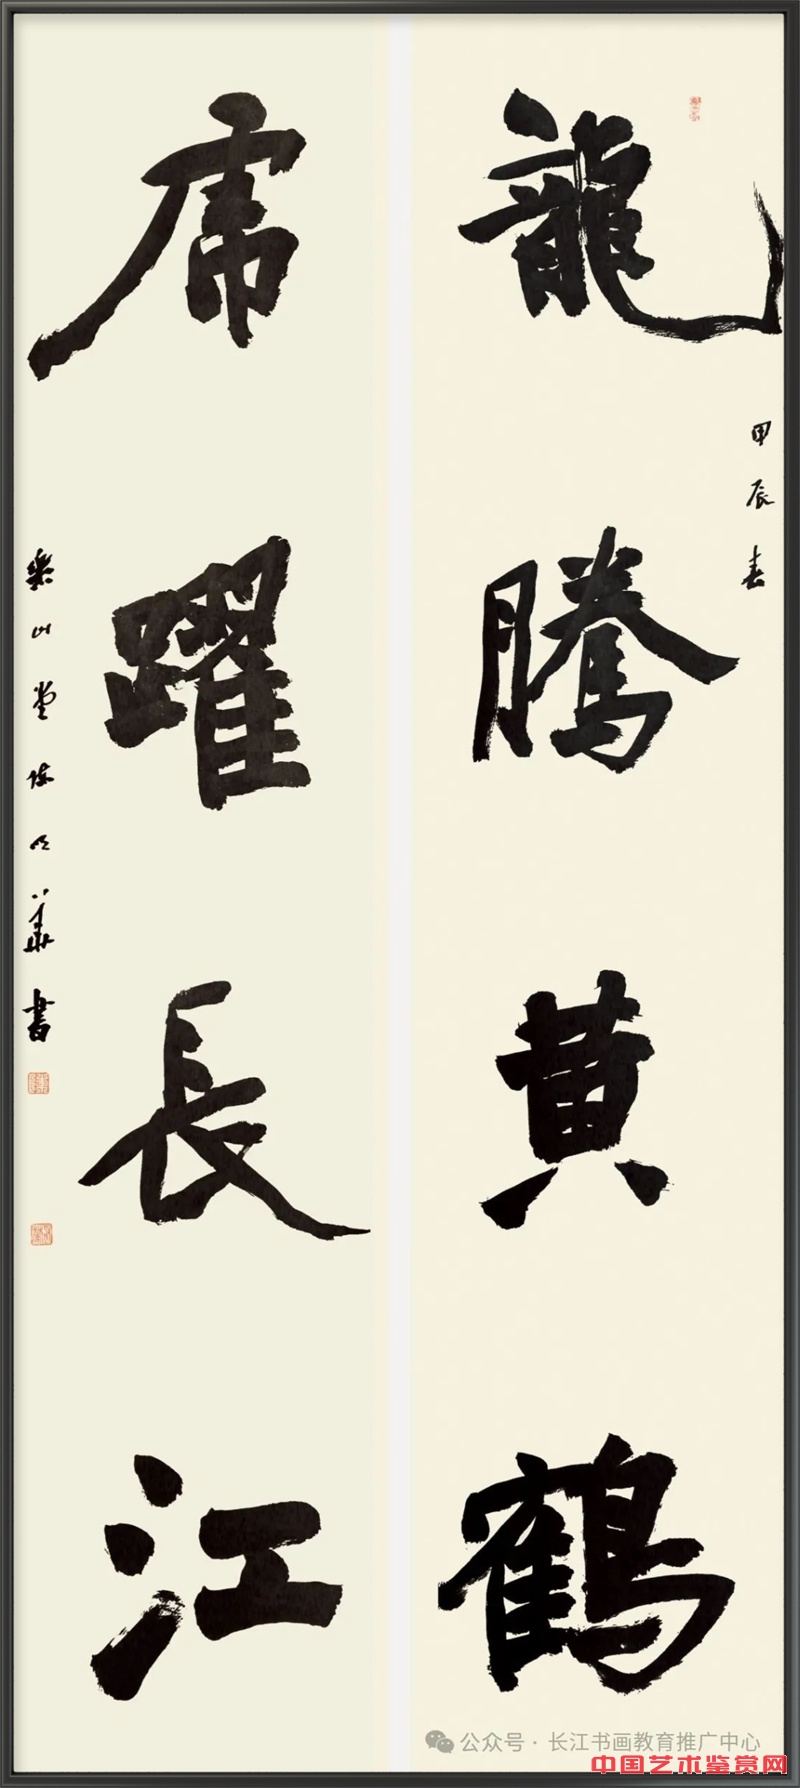 龍騰黄鶴
甲辰春
虎躍長江
樂山堂陈華書
公众号·长江书画教育推广中心
中国艺术鉴赏网